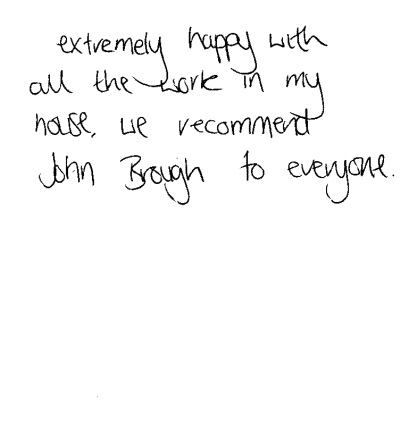 extremely happy with
all the work in my
house, we recommend
John Brough to everyone.